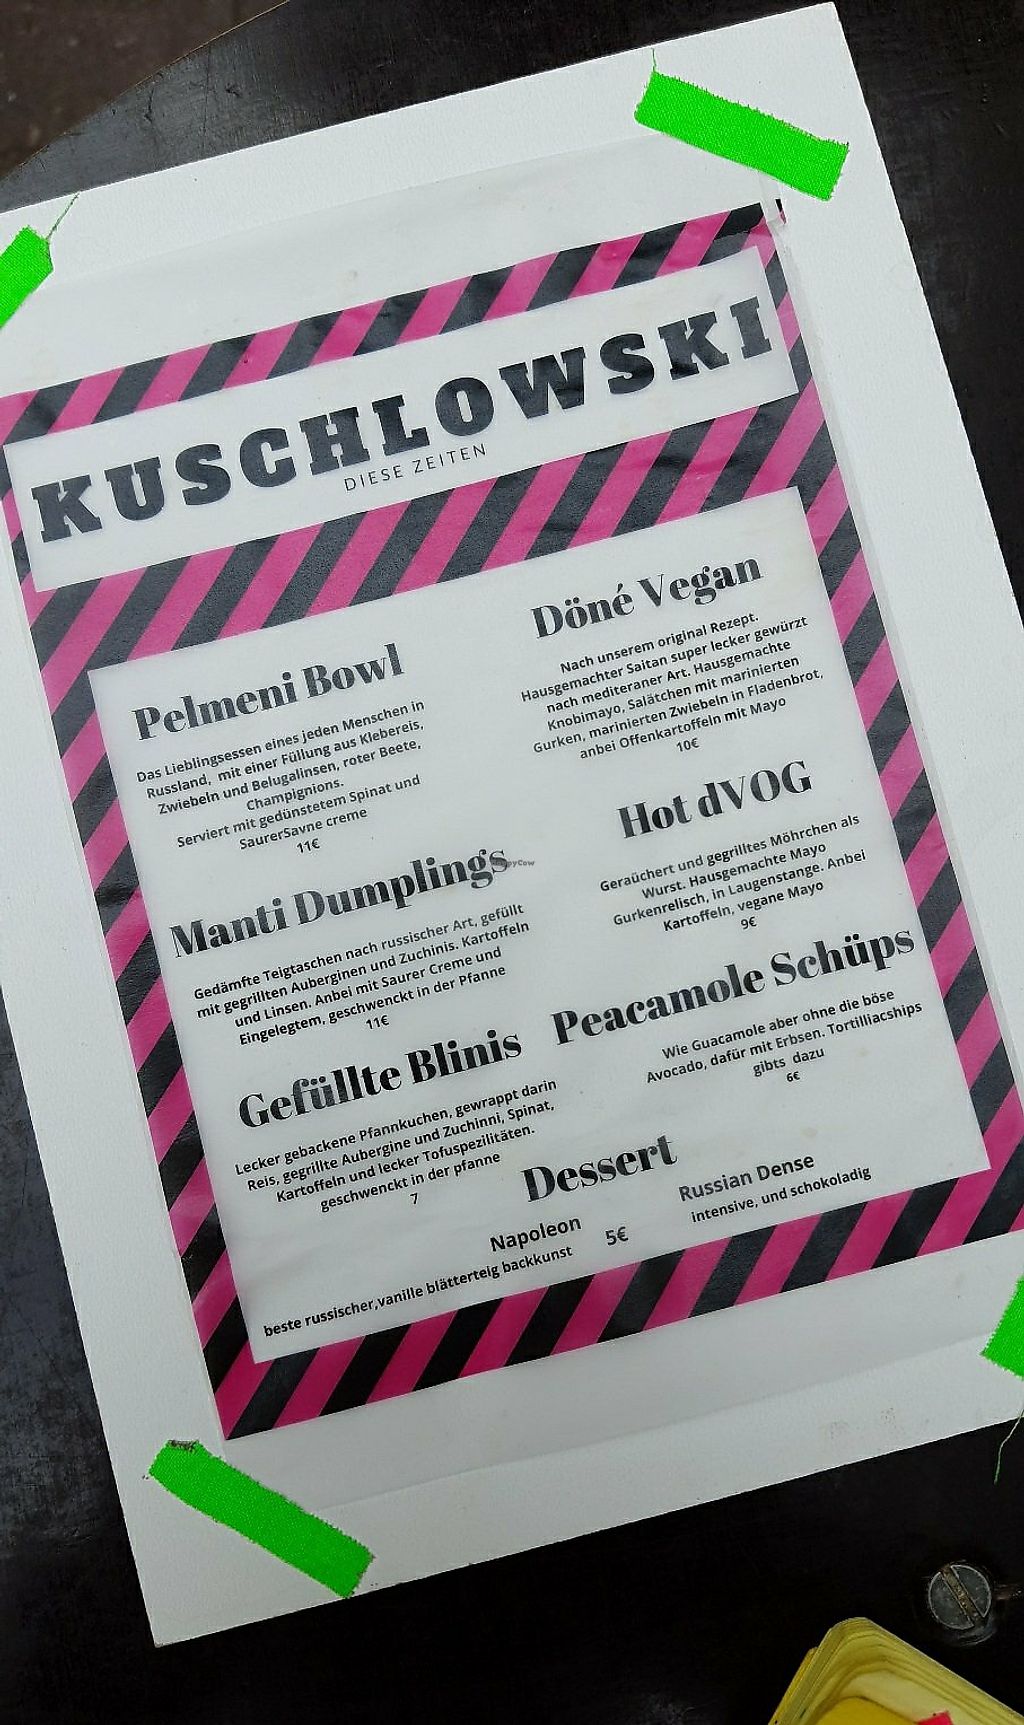 KUSCHLOWSKI
DIESE ZEITEN
Pelmeni Bowl
Das Lieblingsessen eines jeden Menschen in
Russland, mit einer Füllung aus Klebereis,
Zwiebeln und Belugalinsen, roter Beete,
Champignions.
Serviert mit gedünstetem Spinat und
SaurerSavne creme
11€
Manti Dumplings
Gedämfte Teigtaschen nach russischer Art, gefüllt
mit gegrillten Auberginen und Zuchinis. Kartoffeln
und Linsen. Anbei mit Saurer Creme und
Eingelegtem, geschwenckt in der Pfanne
11€
Gefüllte Blinis
Lecker gebackene Pfannkuchen, gewrappt darin
Reis, gegrillte Aubergine und Zuchinni, Spinat,
Kartoffeln und lecker Tofuspezilitäten.
geschwenckt in der pfanne
7
Döné Vegan
Nach unserem original Rezept.
Hausgemachter Saitan super lecker gewürzt
nach mediteraner Art. Hausgemachte
Knobimayo, Salätchen mit marinierten
Gurken, marinierten Zwiebeln in Fladenbrot,
anbei Offenkartoffeln mit Mayo
10€
Hot dVOG
Geraüchert und gegrilltes Möhrchen als
Wurst. Hausgemachte Mayo
Gurkenrelisch, in Laugenstange. Anbei
Kartoffeln, vegane Mayo
9€
Peacamole Schüps
Wie Guacamole aber ohne die böse
Avocado, dafür mit Erbsen. Tortilliacships
gibts dazu
6€
Dessert
Napoleon
beste russischer,vanille blätterteig backkunst
5€
Russian Dense
intensive, und schokoladig
HappyCow